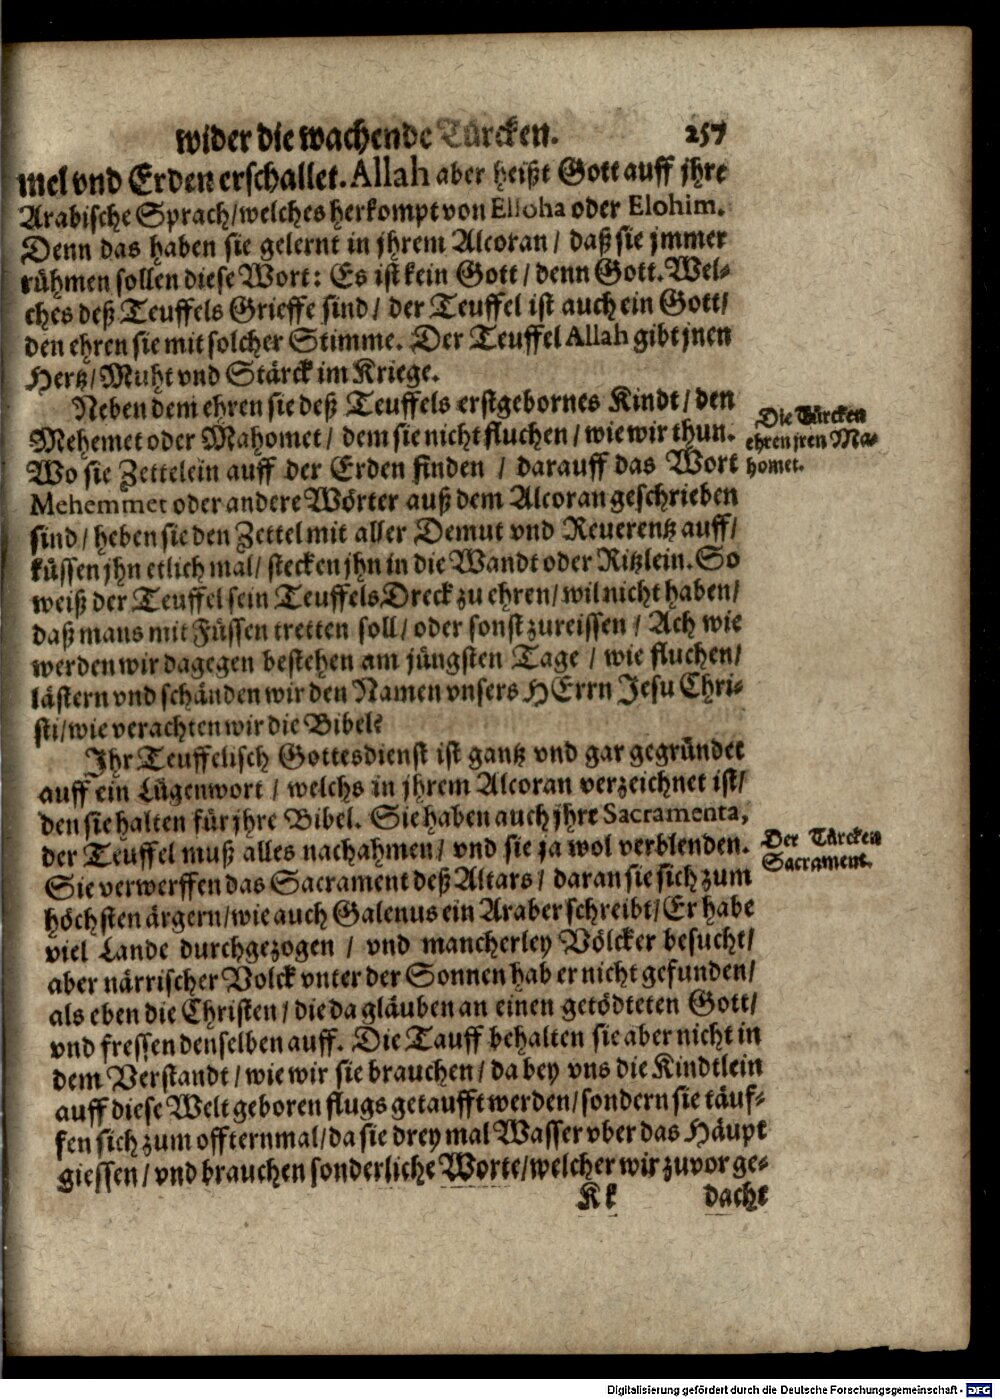 wider die wachende Türcken. 257
mel vnd Erden erschallet. Allah aber heißt Gott auff jhre
Arabische Sprach/welches herkompt von Elloha oder Elohim.
Denn das haben sie gelernt in jhrem Alcoran/ daß sie jmmer
rühmen sollen diese Wort: Es ist kein Gott/ denn Gott. Wel-
ches deß Teuffels Grieffe sind/ der Teuffel ist auch ein Gott/
den ehren sie mit solcher Stimme. Der Teuffel Allah gibt jnen
Hertz/Muht vnd Stärck im Kriege.
Neben dem ehren sie deß Teuffels erstgebornes Kindt/ den
Mehemet oder Mahomet/ dem sie nicht fluchen/ wie wir thun.
Die Türcken
ehren jren Ma-
homet.
Wo sie Zettelein auff der Erden finden / darauff das Wort
Mehemmet oder andere Wörter auß dem Alcoran geschrieben
sind/ heben sie den Zettel mit aller Demut vnd Reuerentz auff/
küssen jhn etlich mal/ stecken jhn in die Wandt oder Ritzlein. So
weiß der Teuffel sein Teuffels Dreck zu ehren/ wil nicht haben/
daß mans mit Füssen tretten soll/ oder sonst zureissen/ Ach wie
werden wir dagegen bestehen am jüngsten Tage / wie fluchen/
lästern vnd schänden wir den Namen vnsers HErrn Jesu Chri-
sti/wie verachten wir die Bibel?
Ihr Teuffelisch Gottesdienst ist gantz vnd gar gegründet
auff ein Lügenwort / welchs in jhrem Alcoran verzeichnet ist/
den sie halten für jhre Bibel. Sie haben auch jhre Sacramenta,
der Teuffel muß alles nachahmen/ vnd sie ja wol verblenden.
Der Türcken
Sacrament.
Sie verwerffen das Sacrament deß Altars/ daran sie sich zum
höchsten ärgern/wie auch Galenus ein Araber schreibt/ Er habe
viel Lande durchgezogen / vnd mancherley Völcker besucht/
aber närrischer Volck vnter der Sonnen hab er nicht gefunden/
als eben die Christen/ die da gläuben an einen getödteten Gott/
vnd fressen denselben auff. Die Tauff behalten sie aber nicht in
dem Verstandt/ wie wir sie brauchen/ da bey vns die Kindtlein
auff diese Welt geboren flugs getaufft werden/ sondern sie täuf-
fen sich zum offternmal/da sie drey mal Wasser vber das Häupt
giessen/ vnd brauchen sonderliche Worte/welcher wir zuvor ge-
Kk dacht
Digitalisierung gefördert durch die Deutsche Forschungsgemeinschaft - DFG